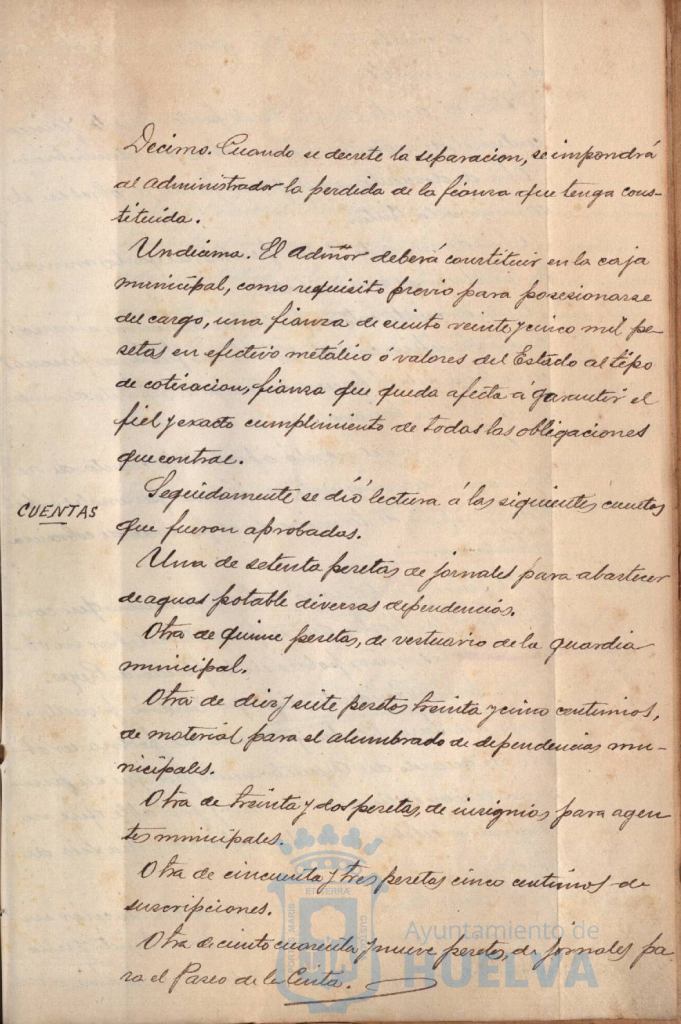 Decimo. Cuando se decrete la separacion, se impondrá
al administrador la perdida de la fianza que tenga cons-
tituida.
Undécima. El Admor deberá constituir en la caja
municipal, como requisito previo para posesionarse
del cargo, una fianza de ciento veinte y cinco mil pe
setas en efectivo metálico ó valores del Estado al tipo
de cotizacion, fianza que queda afecta á garantir el
fiel y exacto cumplimiento de todas las obligaciones
que contrae.
CUENTAS
Seguidamente se dió lectura á las siguientes cuentas
que fueron aprobadas.
Una de setenta pesetas de jornales para abastecer
de aguas potable diversas dependencias.
Otra de quince pesetas, de vestuario de la guardia
municipal.
Otra de diez y siete pesetas treinta y cinco centimos,
de material para el alumbrado de dependencias mu-
nicipales.
Otra de treinta y dos pesetas, de insignias para agen
tes municipales.
Otra de cincuenta y tres pesetas cinco centimos de
suscripciones.
Otra de ciento cuarenta y nueve pesetas, de jornales pa
ra el Paseo de la Cinta.
Ayuntamiento de
HUELVA